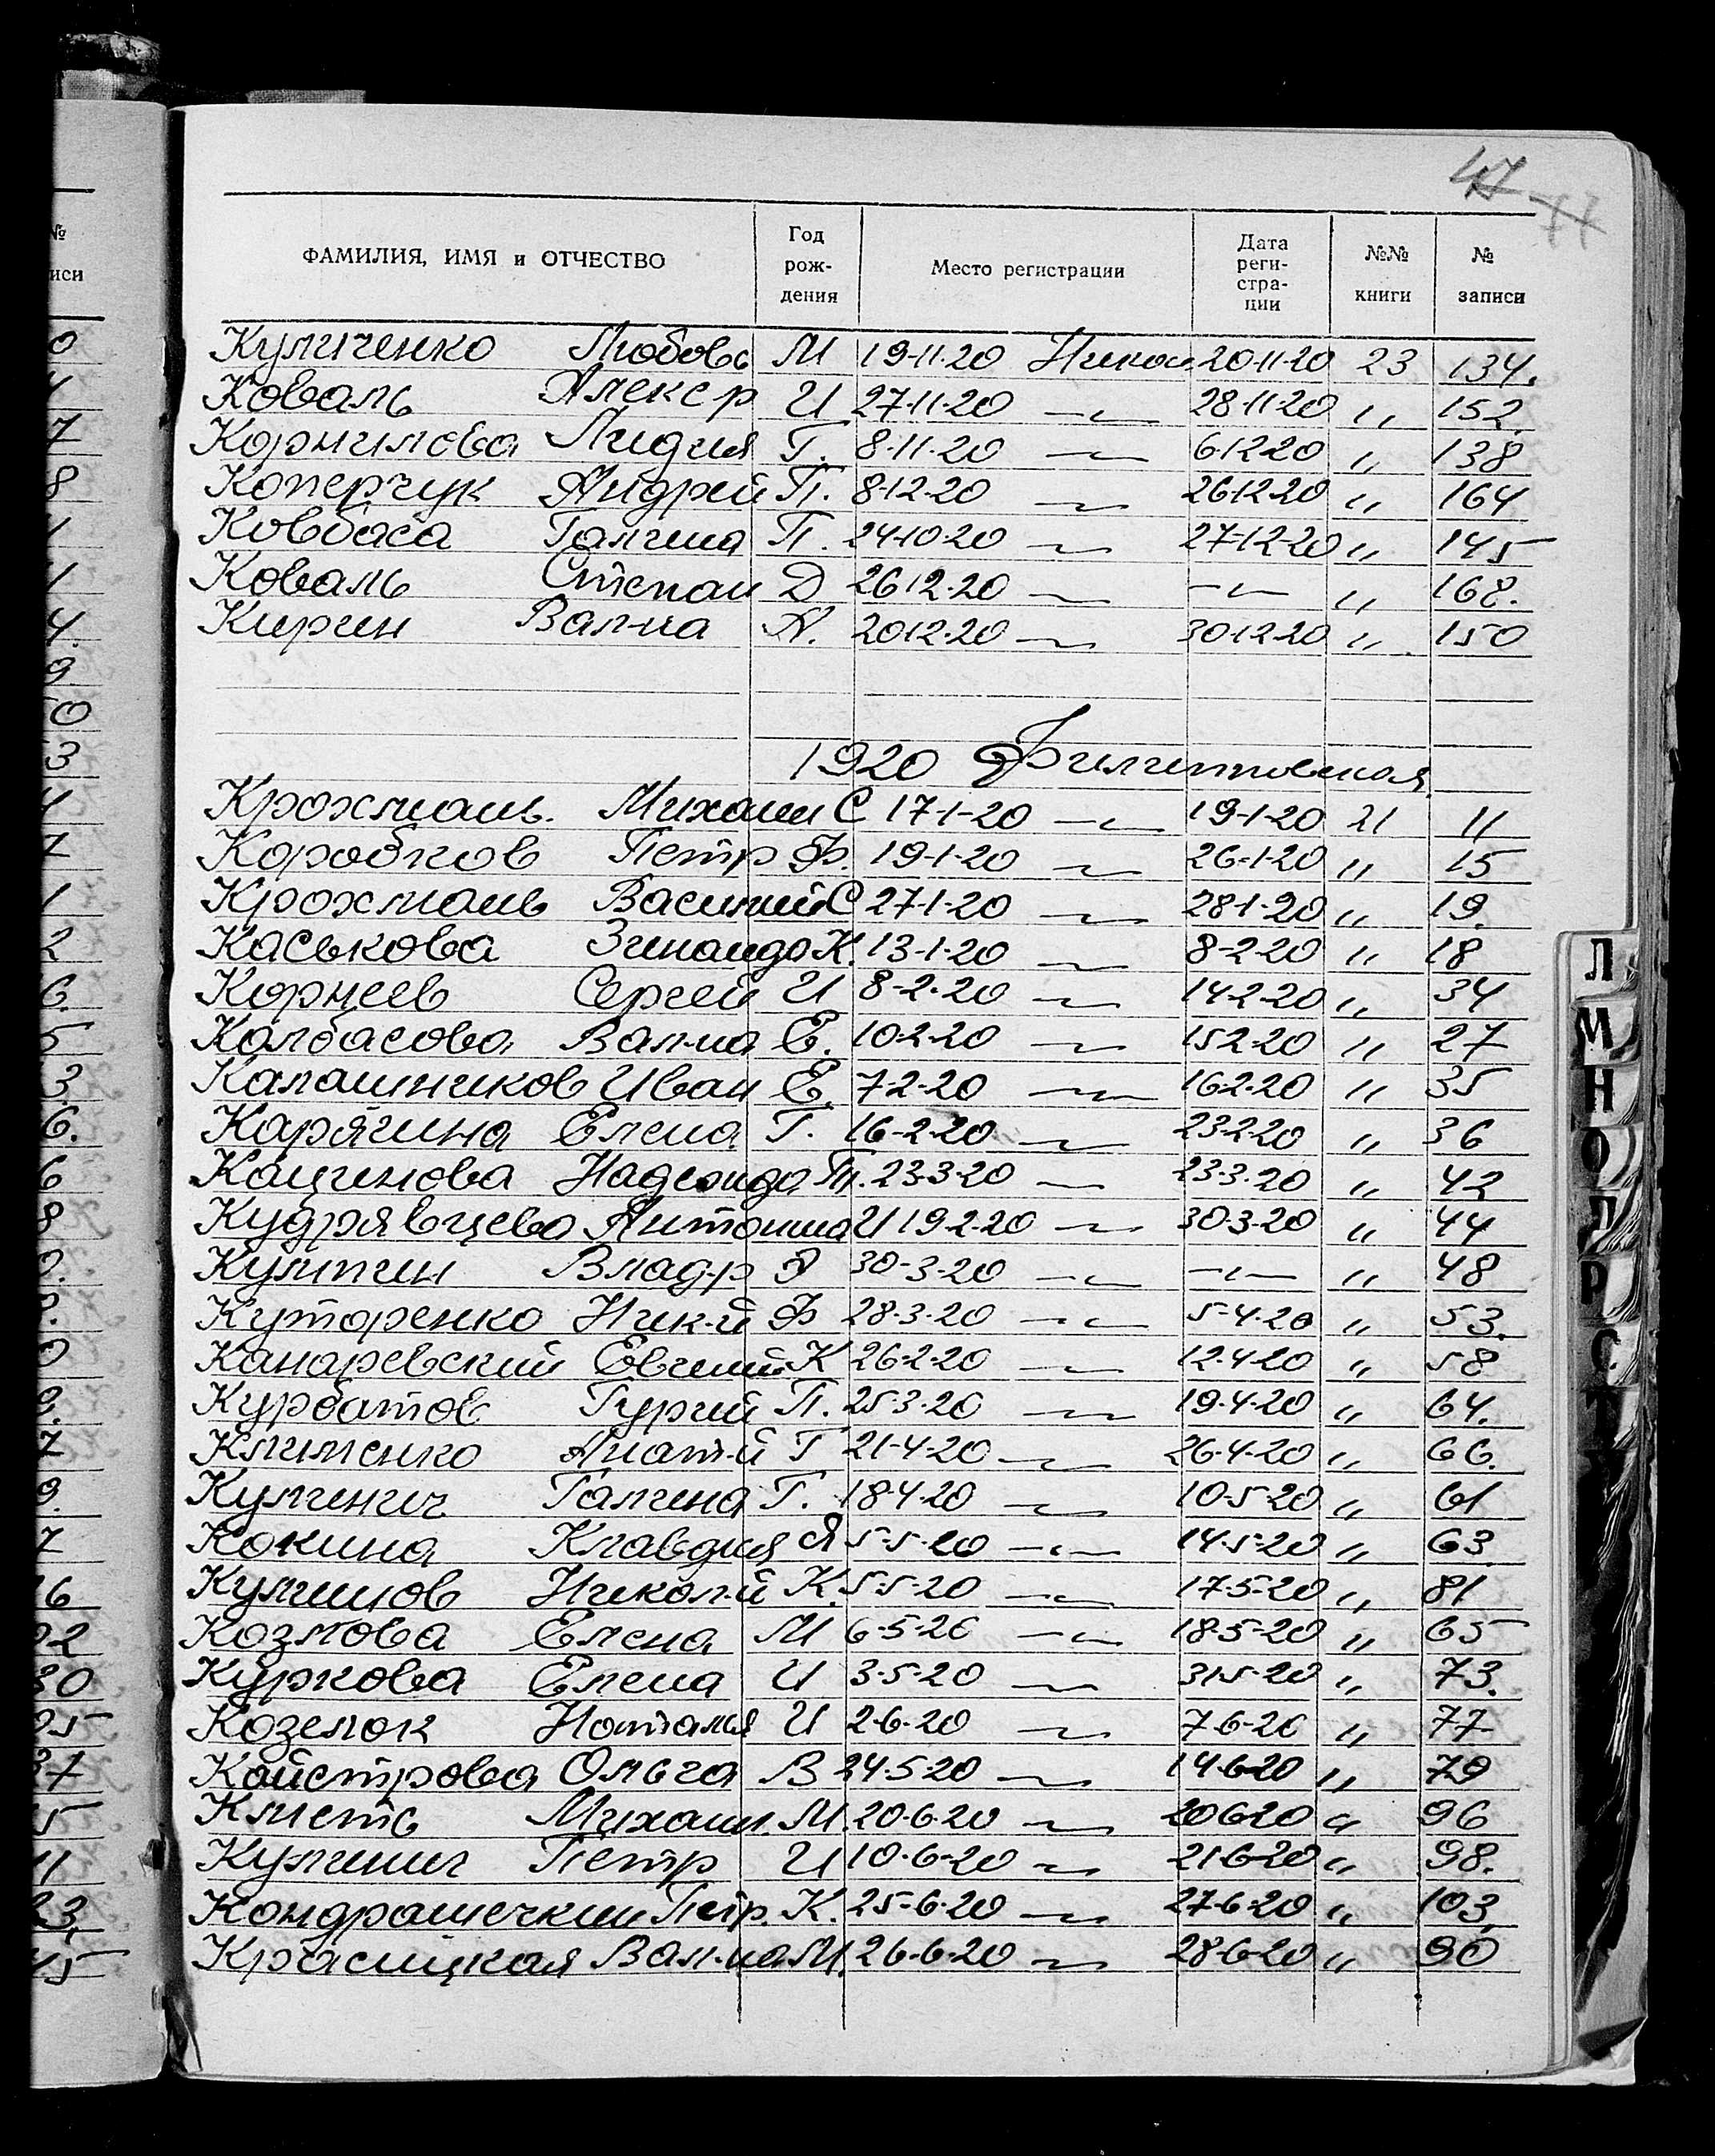 47 77
№ ФАМИЛИЯ, ИМЯ и ОТЧЕСТВО Год рож- дения Место регистрации Дата реги- стра- ции №№ книги № записи
Куличенко Любовь М 19-11-20 Никол 20-11-20 23 134.
Коваль Алекс р И 27-11-20 —〃— 28-11-20 〃 152.
Корнилова Лидия Г. 8-11-20 —〃— 6-12-20 〃 138
Коперчук Андрей П. 8-12-20 —〃— 26-12-20 〃 164
Ковбаса Галина П. 24-10-20 —〃— 27-12-20 〃 145
Коваль Степан Д 26-12-20 —〃— —〃— 〃 168.
Кирин Вал-на А. 20-12-20 —〃— 30-12-20 〃 150
1920 Филипповская
Крохмаль. Михаил С 17-1-20 —〃— 19-1-20 21 11
Коробков Петр Ф. 19-1-20 —〃— 26-1-20 〃 15
Крохмаль Василий С 27-1-20 —〃— 28-1-20 〃 19.
Каськова Зинаида К. 13-1-20 —〃— 8-2-20 〃 18
Корнеев Сергей И 8-2-20 —〃— 14-2-20 〃 34
Колбасова Вал-на Е. 10-2-20 —〃— 15-2-20 〃 27
Калашников Иван Е. 7-2-20 —〃— 16-2-20 〃 35
Карягина Елена Г. 16-2-20 —〃— 23-2-20 〃 36
Кащенова Надежда Т. 23-3-20 —〃— 23-3-20 〃 42
Кудрявцева Антонина И 19-2-20 —〃— 30-3-20 〃 44
Владр 30-3-20 —〃— —〃— 〃 48
Куторенко Ник-й Ф 28-3-20 —〃— 5-4-20 〃 53.
Канаревский Евгений К 26-2-20 —〃— 12-4-20 〃 58
Курбатов Гурий П. 25-3-20 —〃— 19-4-20 〃 64.
Клименко Анат-й Г 21-4-20 —〃— 26-4-20 〃 66.
Кулинич Галина Г. 18-4-20 —〃— 10-5-20 〃 61
Кокина Клавдия Я 5-5-20 —〃— 14-5-20 〃 63
Николй К. 5-5-20 —〃— 17-5-20 〃 81
Козлова Елена М 6-5-20 —〃— 18-5-20 〃 65
Куркова Елена И 3-5-20 —〃— 31-5-20 〃 73.
Козелок Наталья И 2-6-20 —〃— 7-6-20 〃 77
Койстрова Ольга В 24-5-20 —〃— 14-6-20 〃 79
Клеть Михаил. М. 20-6-20 —〃— 20-6-20 〃 96
Кулинич Петр И 10-6-20 —〃— 21-6-20 〃 98.
Кондрашечкин Петр. К. 25-6-20 —〃— 27-6-20 〃 103.
Красицкая Вал-на М. 26-6-20 —〃— 28-6-20 〃 90
Л
М
Н
О
П
Р
С
Т